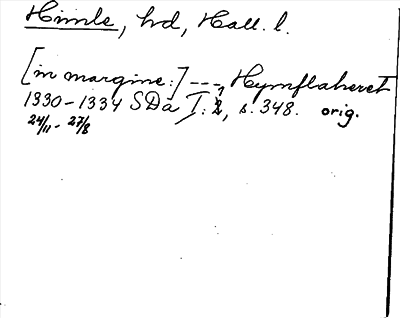 Himle, hd, Hall. l.
[in margine:] ---, Hymflaheret
1330-1334 SDa I:2, s. 348. orig.
24/11 - 27/8